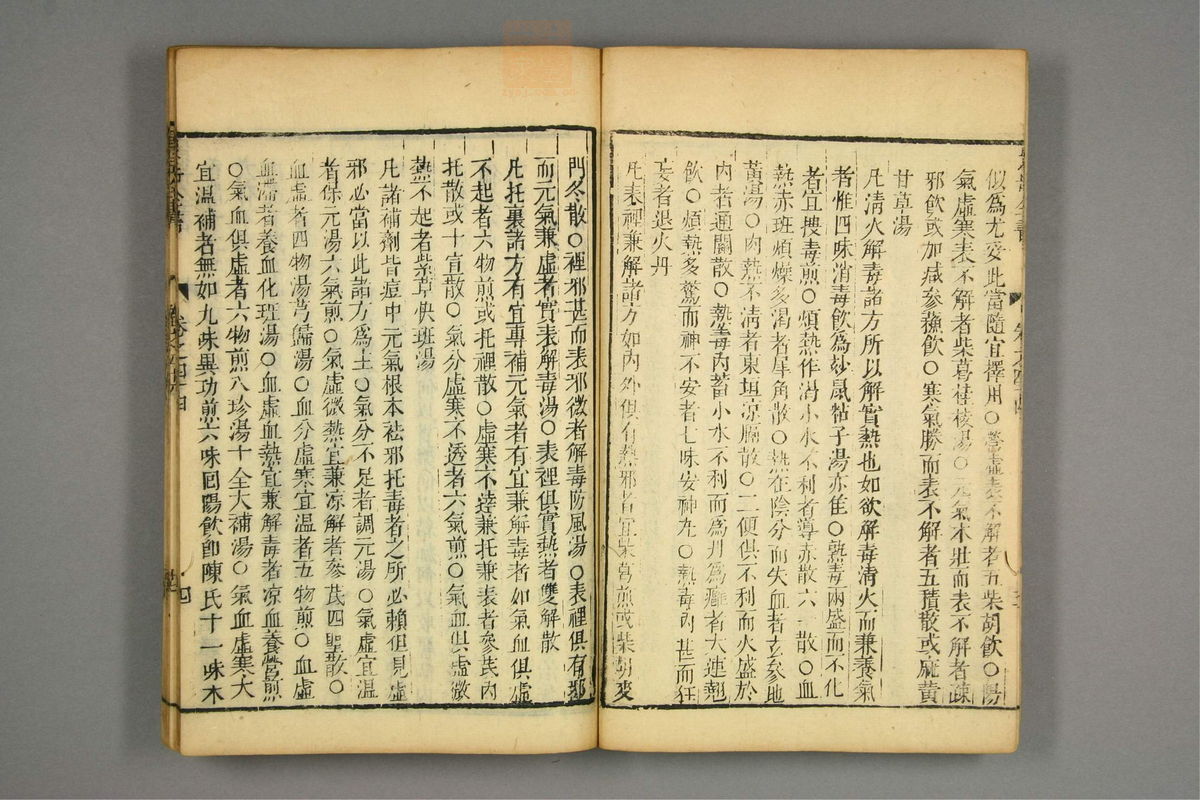 似爲尤妥此當隨宜擇用○營虛表不解者五柴胡飲○陽
氣虛寒表不解者柴葛桂枝湯○元氣木壯而表不解者疎
邪飲或加减參蘇飲○寒氣勝而表不解者五積散或麻黄
甘草湯
凡淸火解毒諸方所以解實熱也如欲解毒淸火而兼養氣
者惟四味消毒飲爲妙鼠帖子湯亦佳○熱毒兩盛而不化
者宜搜毒煎○煩熱作渇小水不利者導赤散六一散○血
熱赤班煩燥多渇者犀角散○熱在陰分而失血者玄參地
黃湯○内熱不淸者東垣凉膈散○二便俱不利而火盛於
内者通關散○熱毒内蓄小水不利而爲丹爲癰者大連翹
飲○煩熱多驚而神不安者七味安神丸○熱毒内甚而狂
妄者退火丹
凡表裡兼解諸方如内外俱有熱邪者宜柴葛煎或柴胡麥
門冬散○裡邪甚而表邪微者解毒防風湯○表裡俱有邪
而元氣兼虛者實表解毒湯○表裡俱實熱者雙解散
凡托裏諸方有宜專補元氣者有宜兼解毒者如氣血俱虛
不起者六物煎或托裡散○虛寒不達兼托兼表者參芪内
托散或十宜散○氣分虛寒不透者六氣煎○氣血俱虛微
熱不起者紫草快班湯
凡諸補劑皆痘中元氣根本祛邪托毒者之所必賴但見虛
邪必當以此諸方爲主○氣分不足者調元湯○氣虛宜温
者保元湯六氣煎○氣虛微熱宜兼凉解者參芪四聖散○
血虛者四物湯芎歸湯○血分虛寒宜温者五物煎○血虛
血滯者養血化班湯○血虛血熱宜兼解毒者凉血養營煎
○氣血俱虛者六物煎八珍湯十全大補湯○氣血虛寒大
宜温補者無如九味異功煎六味回陽飲卽陳氏十一味木
卷之四十四